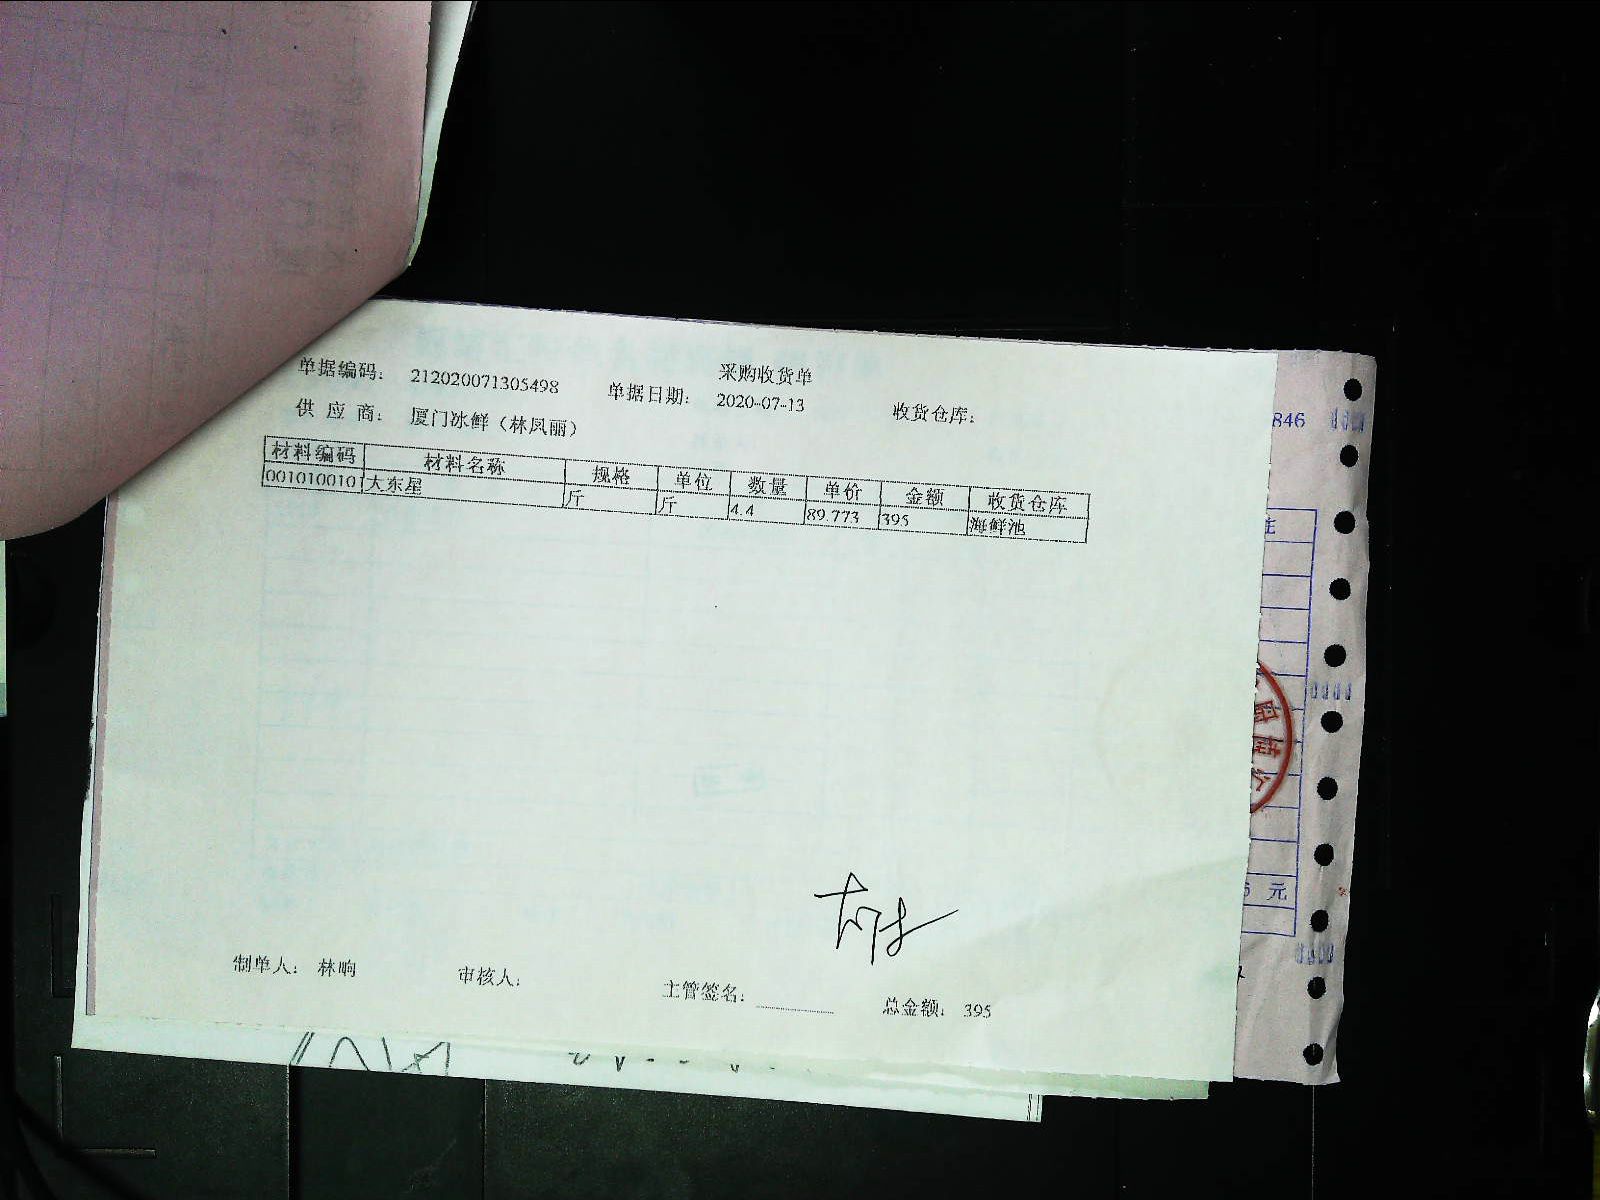 采购收货单
单据编码： 212020071305498 单据日期： 2020-07-13 收货仓库：
供 应 商： 厦门冰鲜（林凤丽）
材料编码 材料名称 规格 单位 数量 单价 金额 收货仓库
001010010 大东星 斤 斤 4.4 89.773 395 海鲜池
制单人： 林晌 审核人： 主管签名： 总金额： 395
846
元